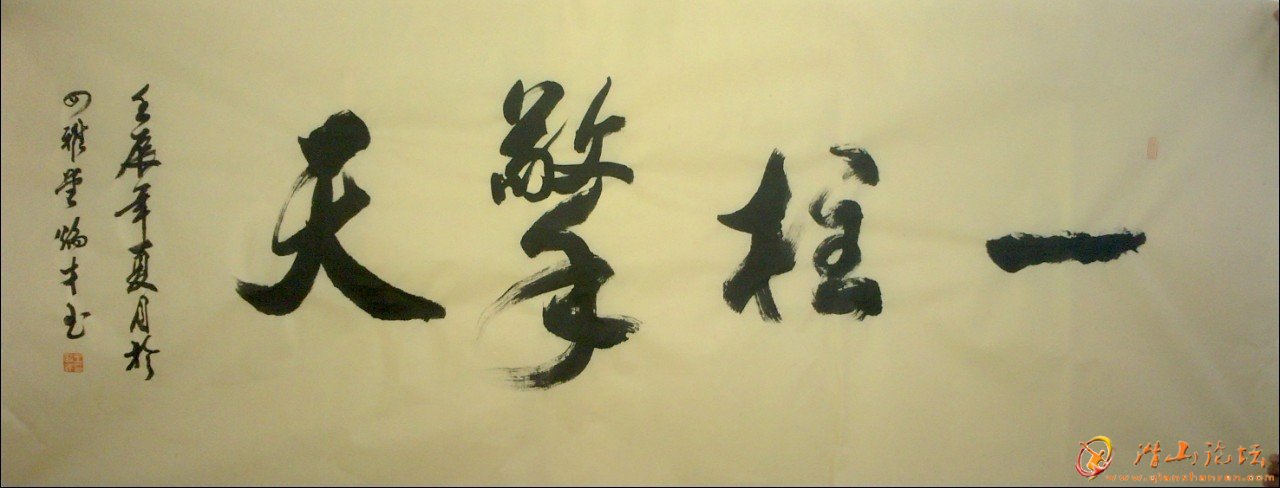 一柱擎天
壬辰年夏月於
四雅堂炳才书
潜山论坛
www.qianshanren.com